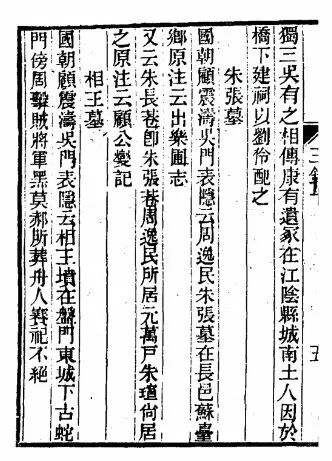 獨三吳有之相傳康有遺冢在江陰縣城南土人因於
橋下建祠以劉伶配之
朱張墓
國朝顧震濤吳門表隱云周逸民朱張墓在長邑蘇臺
鄉原注云出樂圃志
又云朱長巷卽朱張巷周逸民所居元萬戶朱瑄尙居
之原注云顧公燮記
相王墓
國朝顧震濤吳門表隱云相王墳在盤門東城下古蛇
門傍周擊賊將軍黑莫郝所葬舟人賽祀不絕
五